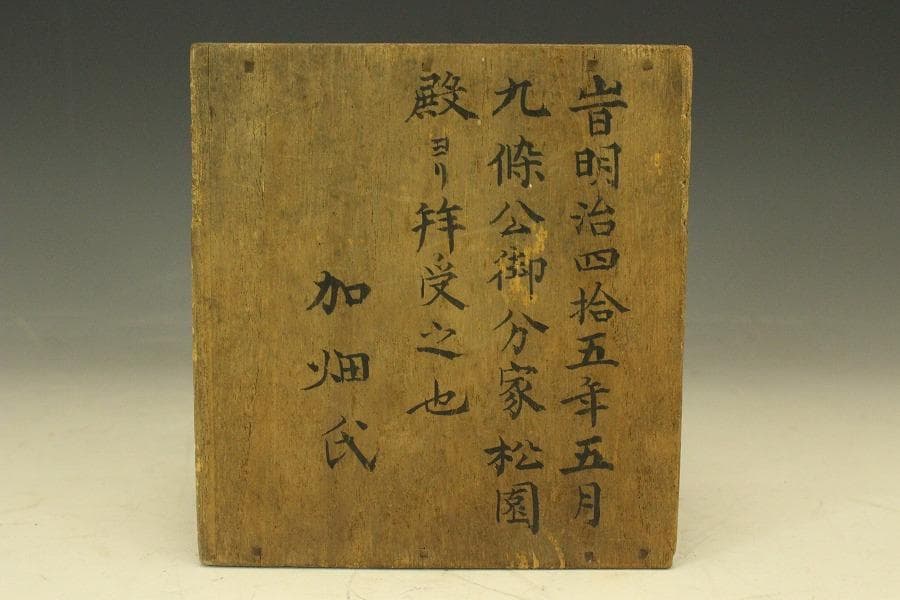 旹明治四拾五年五月
九條公御分家松園
殿ヨリ拜受之也
加畑氏